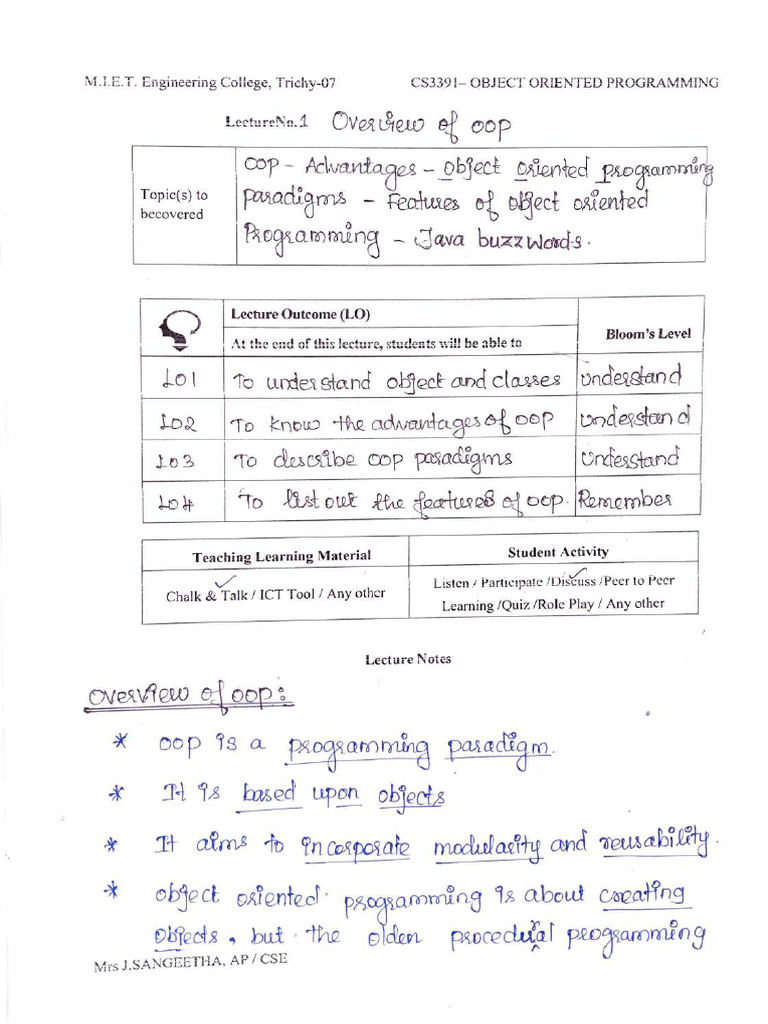 M.I.E.T. Engineering College, Trichy-07 CS3391– OBJECT ORIENTED PROGRAMMING
LectureNo.1 Overview of OOP
Topic(s) to becovered
OOP - Advantages - Object Oriented programming
Paradigms - Features of Object Oriented
Programming - Java buzzwords.
Lecture Outcome (LO)
At the end of this lecture, students will be able to
Bloom's Level
LO1 To understand object and classes Understand
LO2 To know the advantages of OOP Understand
LO3 To describe OOP paradigms Understand
LO4 To list out the features of OOP. Remember
Teaching Learning Material Student Activity
Chalk & Talk / ICT Tool / Any other
Listen / Participate /Discuss /Peer to Peer
Learning /Quiz /Role Play / Any other
Lecture Notes
Overview of OOP:
* OOP is a programming paradigm.
* It is based upon objects
* It aims to incorporate modularity and reusability.
* Object oriented programming is about creating
objects, but the olden procedural programming
Mrs J.SANGEETHA, AP / CSE